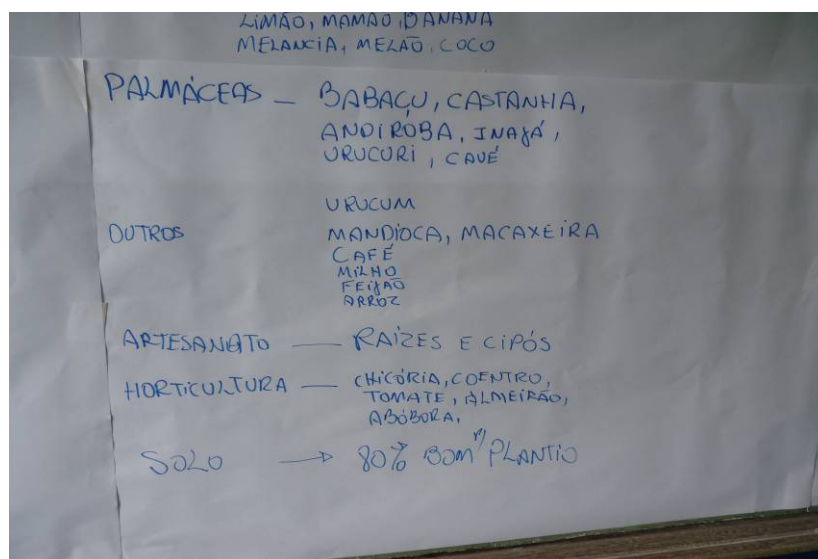 LIMÃO, MAMÃO, BANANA
MELANCIA, MELÃO, COCO
PALMÁCEAS — BABAÇU, CASTANHA,
ANDIROBA, INAJÁ,
URUCURI, CAUÉ
URUCUM
OUTROS MANDIOCA, MACAXEIRA
CAFÉ
MILHO
FEIJÃO
ARROZ
ARTESANATO — RAÍZES E CIPÓS
HORTICULTURA — CHICÓRIA, COENTRO,
TOMATE, ALMEIRÃO,
ABÓBORA,
SOLO → 80% BOM P/ PLANTIO